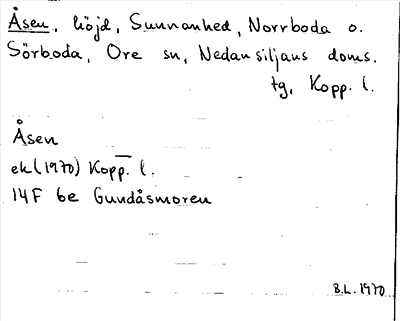 Åsen, höjd, Sunnanhed, Norrboda o.
Sörboda, Ore sn, Nedansiljans doms.
tg, Kopp. l.
Åsen
ek (1970) Kopp. l.
14F 6e Gundåsmoren
B.L. 1970